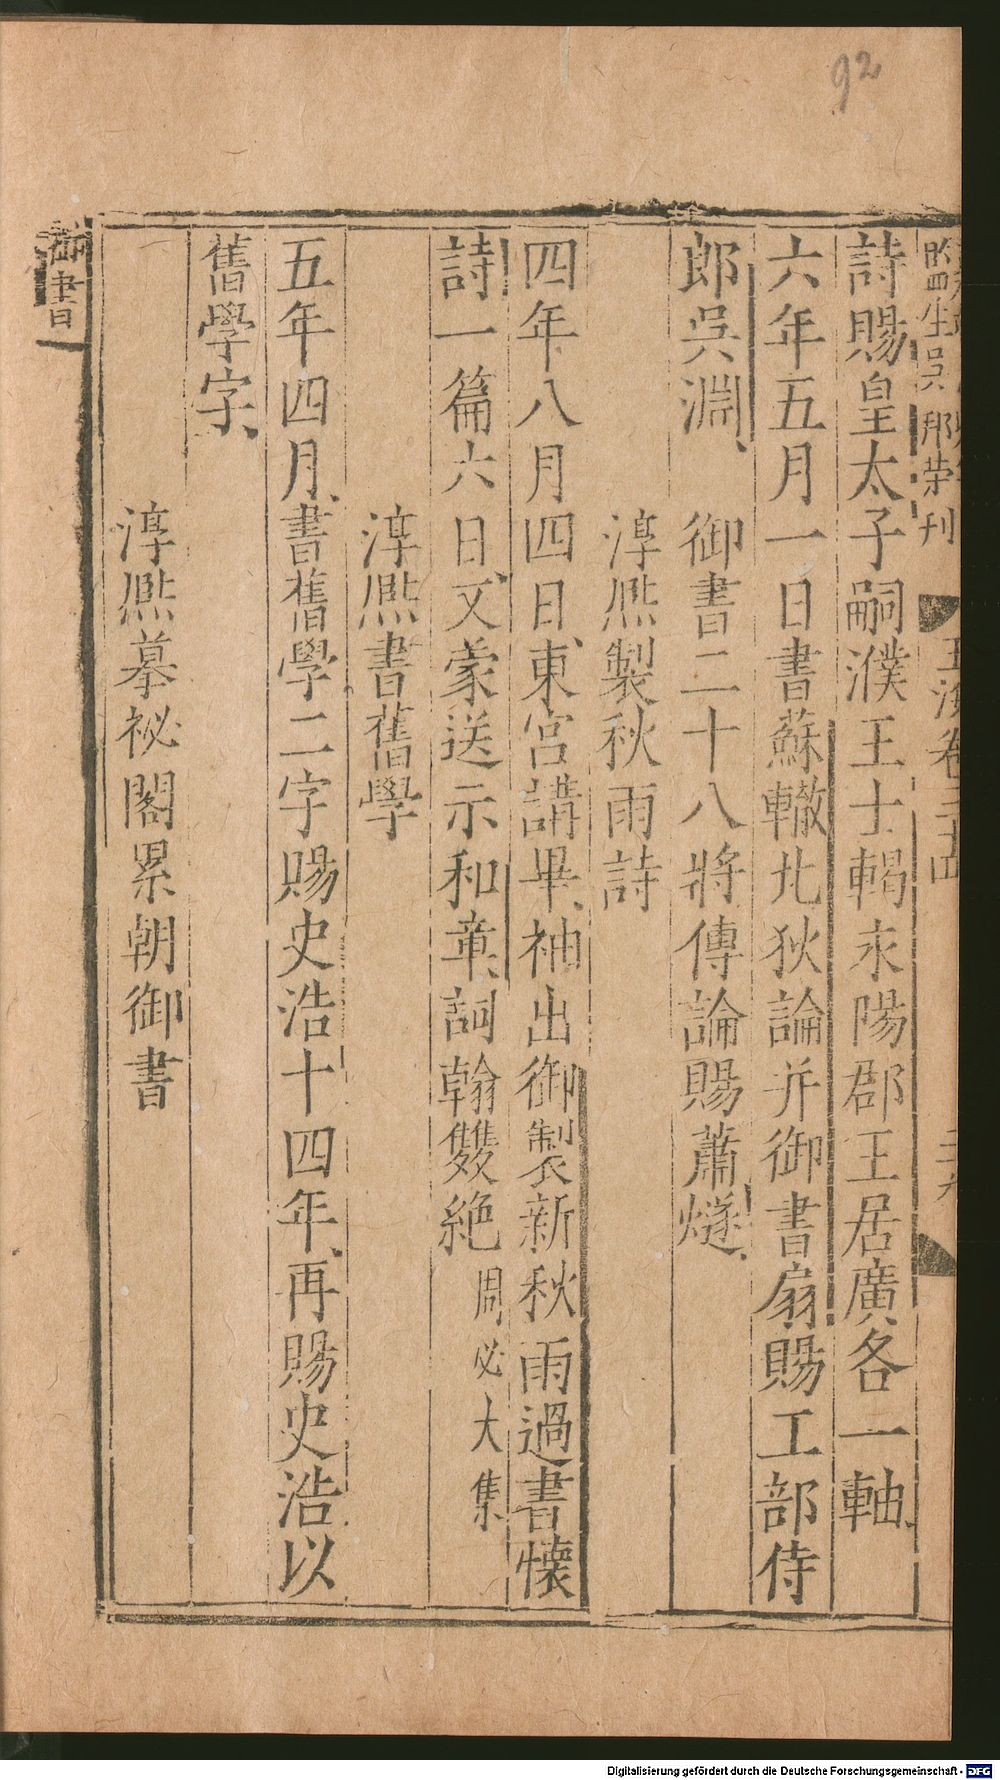 92
監生吳那荣刊
玉海卷三十四
詩賜皇太子嗣濮王士輵永陽郡王居廣各一軸
六年五月一日書蘇轍北狄論并御書扇賜工部侍
郎吳淵、御書二十八將傳論賜蕭燧、
淳熈製秋雨詩
四年八月四日、東宮講畢、袖出御製新秋雨過書懷
詩一篇六日、又蒙送示和章、詞翰雙絶周必大集
淳熈書舊學
五年四月、書舊學二字賜史浩十四年、再賜史浩以
舊學字、
淳熈摹祕閣累朝御書
御書
Digitalisierung gefördert durch die Deutsche Forschungsgemeinschaft - DFG